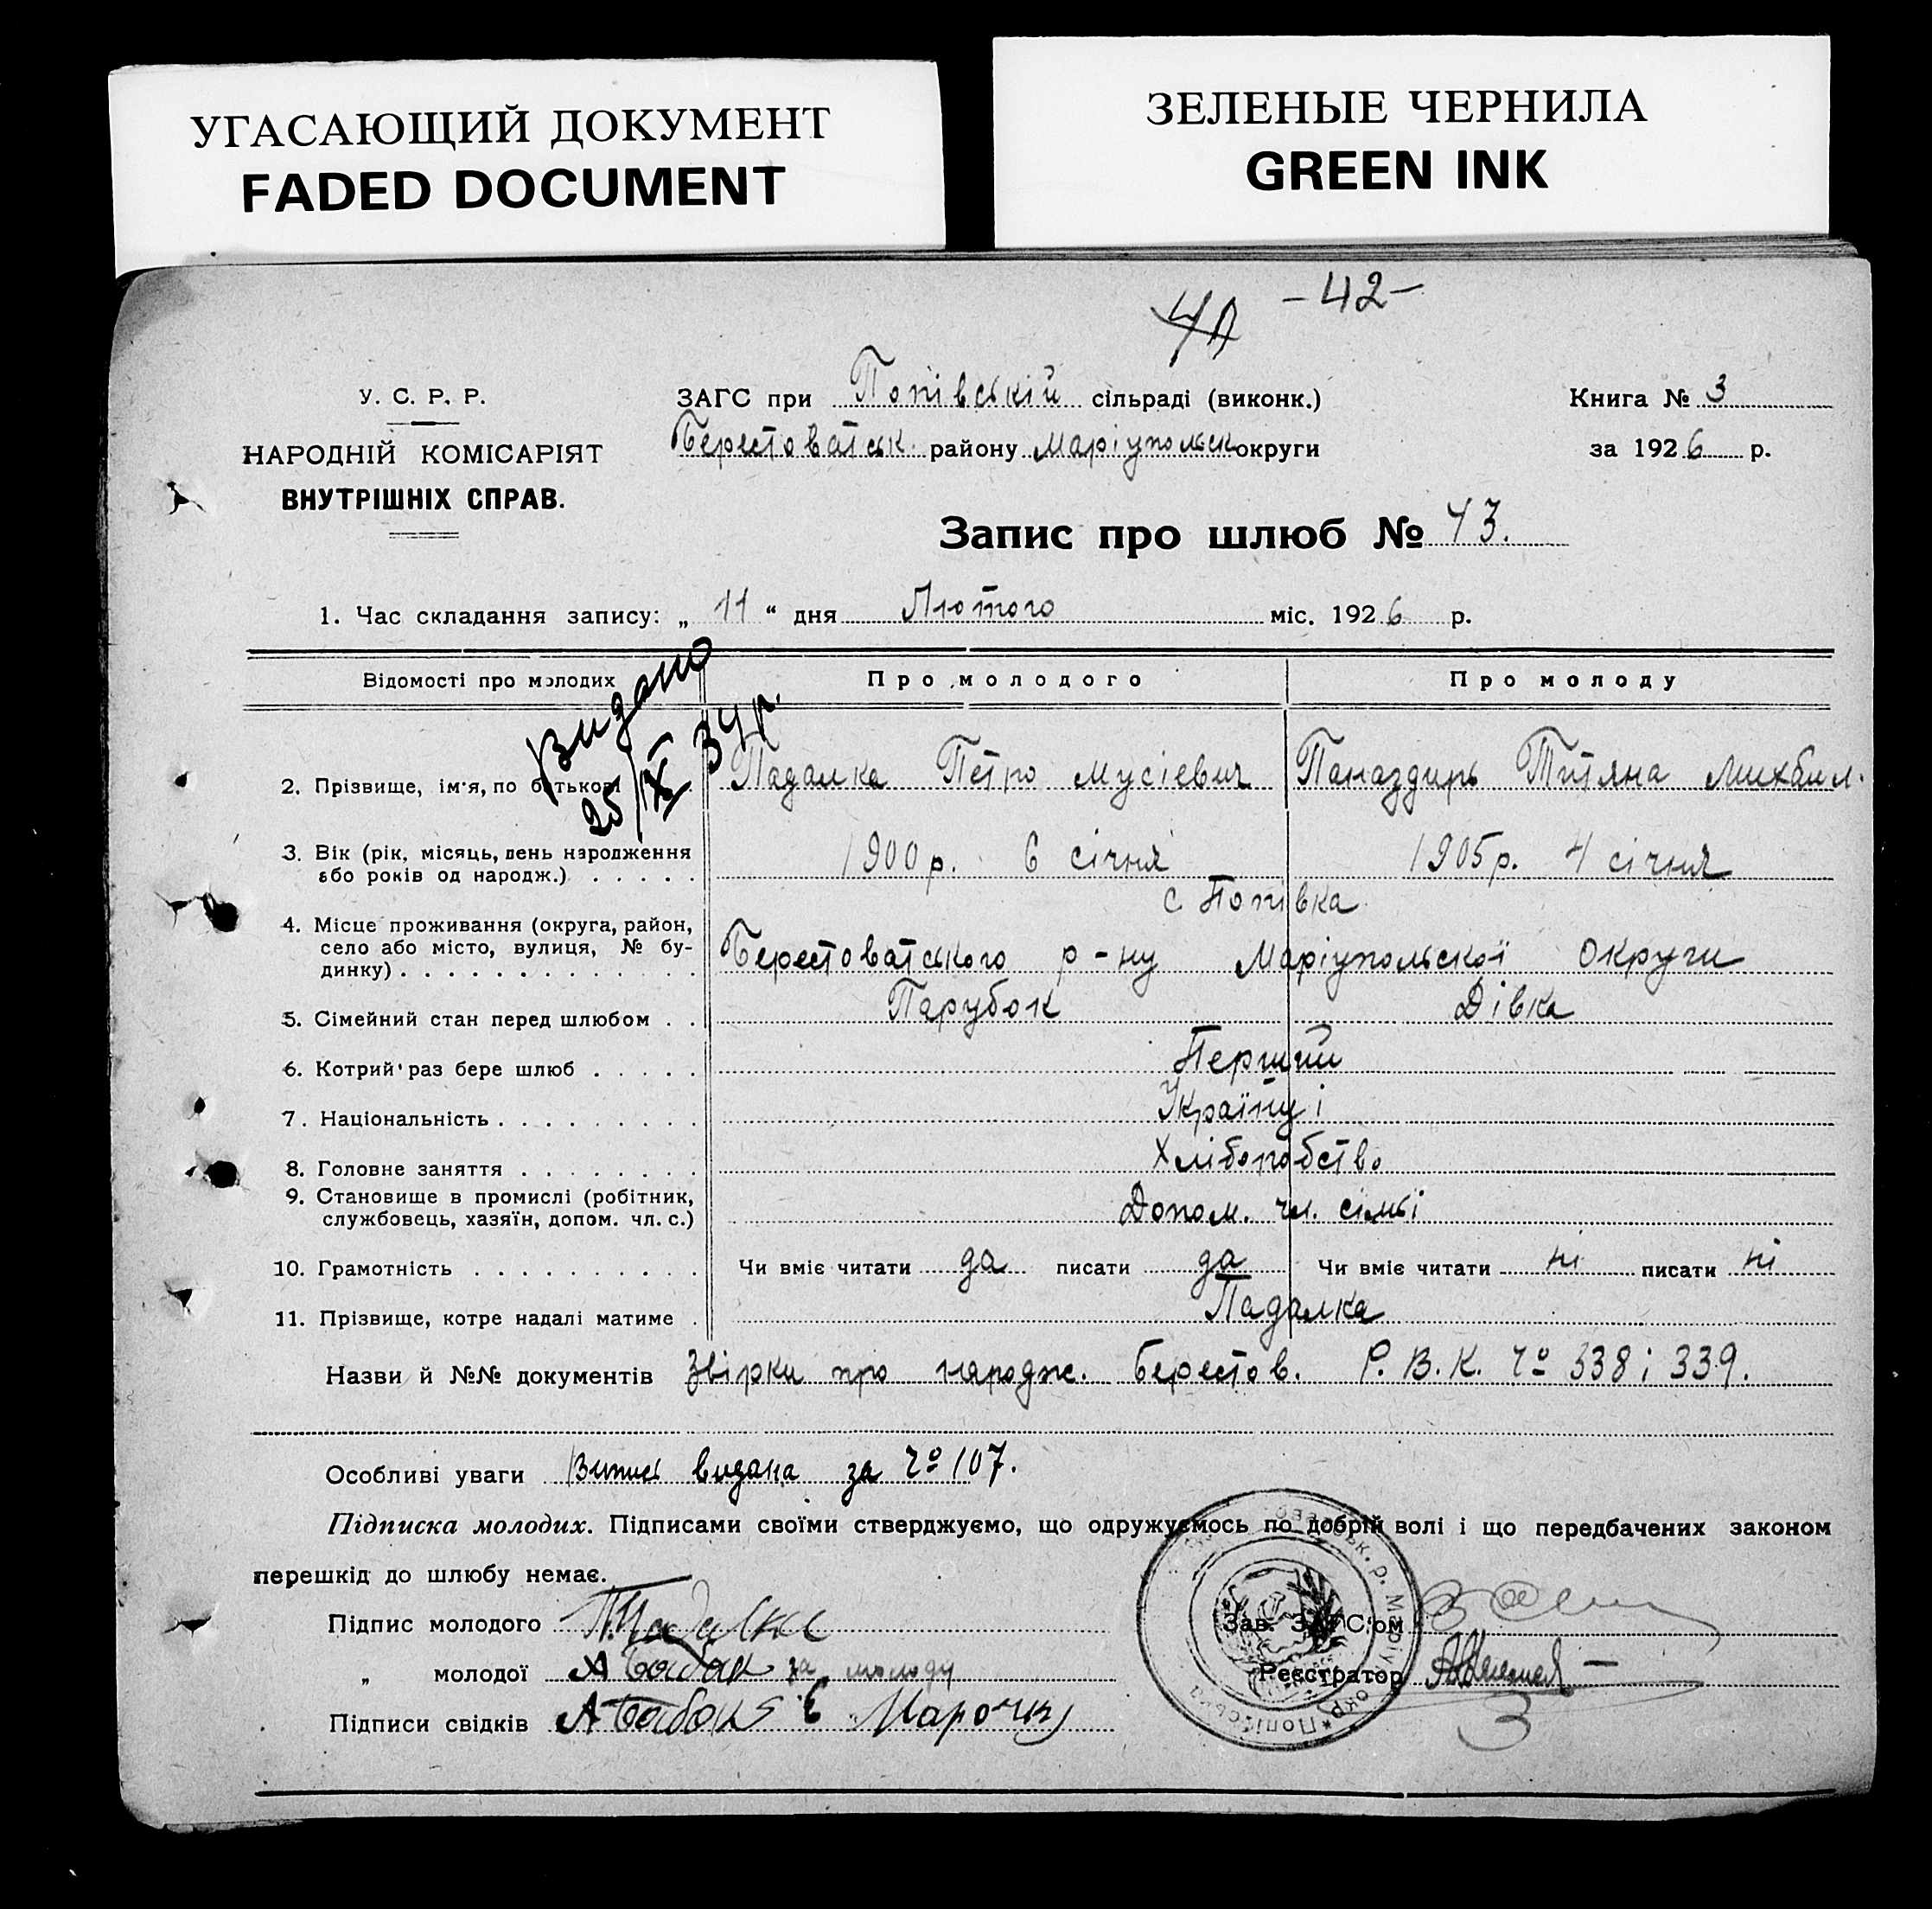 УГАСАЮЩИЙ ДОКУМЕНТ
FADED DOCUMENT
ЗЕЛЕНЫЕ ЧЕРНИЛА
GREEN INK
– 42 –
У. С. Р. Р.
НАРОДНІЙ КОМІСАРІЯТ
ВНУТРІШНІХ СПРАВ.
ЗАГС при Попівській сільраді (виконк.)
Берестоватськ. району Маріупольск округи
Книга № 3
за 1926 р.
Запис про шлюб № 43.
1. Час складання запису: „ 11 “ дня Лютого міс. 1926 р.
Видано
25/XI 34 р.
Відомості про молодих Про молодого Про молоду
2. Прізвище, ім'я, по батькові Падалка Петро Мусієвич Паназдирь Тітяна Михаил.
3. Вік (рік, місяць, день народження 1900 р. 6 січня 1905 р. 4 січня
або років од народж.) . . . . .
с Попівка
4. Місце проживання (округа, район,
село або місто, вулиця, № бу- Берестоватського р-ну Маріупольскої Округи
динку) . . . . . . . . . . . . .
5. Сімейний стан перед шлюбом . . Парубок Дівка
6. Котрий раз бере шлюб . . . . . Перший
7. Національність . . . . . . . . . Українці
8. Головне заняття . . . . . . . . Хлібопобство
9. Становище в промислі (робітник,
службовець, хазяїн, допом. чл. с.) Допом. чл. сімьї
10. Грамотність . . . . . . . . . . Чи вміє читати да писати да Чи вміє читати ні писати ні
11. Прізвище, котре надалі матиме . Падалка
Назви й №№ документів Звірки про народж. Берестов. Р. В. К. № 338 і 339.
Особливі уваги Випись видана за № 107.
Підписка молодих. Підписами своїми стверджуємо, що одружуємось по добрій волі і що передбачених законом
перешкід до шлюбу немає.
Підпис молодого П. Падалка
Зав. ЗАГС'ом
„ молодої А Бабак за молоду
Реєстратор
Підписи свідків А Бабак Е Марочку
3